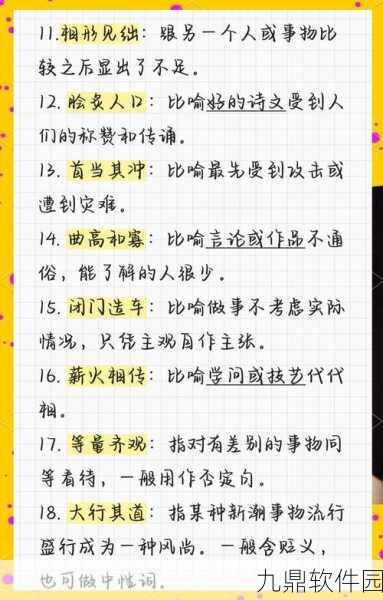 11.相形见绌：跟另一个人或事物比
较之后显出了不足。
12.脍炙人口：比喻好的诗文受到人
们的称赞和传诵。
13.首当其冲：比喻最先受到攻击或
遭到灾难。
14.曲高和寡：比喻言论或作品不通
俗，能了解的人很少。
15.闭门造车：比喻做事不考虑实际
情况，只凭主观自作主张。
16.薪火相传：比喻学问或技艺代代
相。
17.等量齐观：指对有差别的事物同
等看待，一般用作否定句。
18.大行其道：指某种新潮事物流行
盛行成为一种风尚。一般含贬义，
也可做中性词。
九鼎软件园